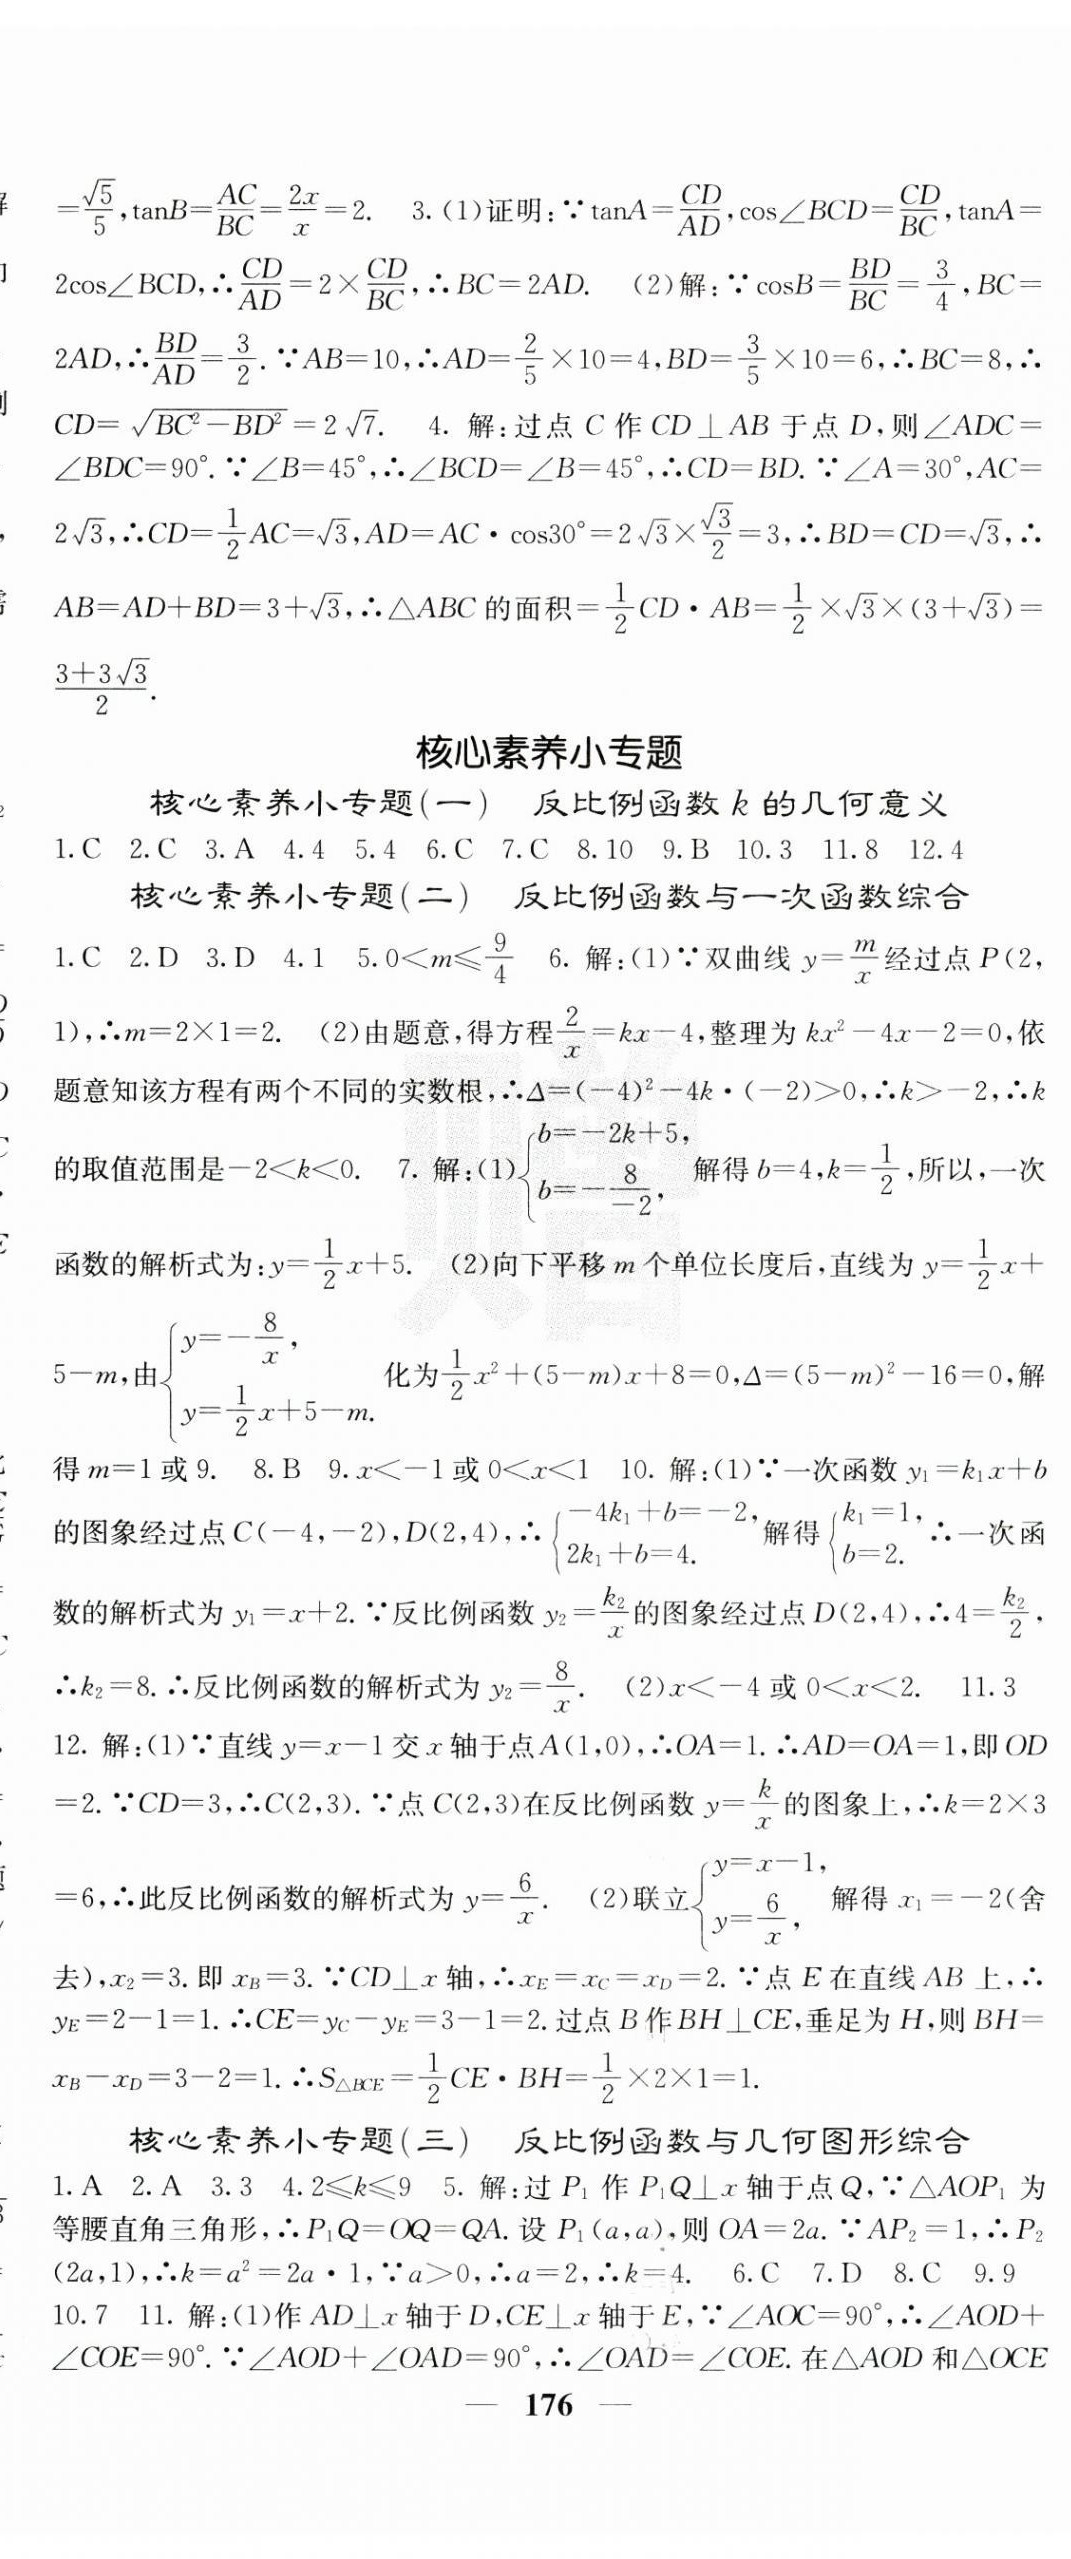 =√5/5,tanB=AC/BC=2x/x=2. 3.(1)证明:∵tanA=CD/AD,cos∠BCD=CD/BC,tanA=
2cos∠BCD,∴CD/AD=2×CD/BC,∴BC=2AD. (2)解:∵cosB=BD/BC=3/4,BC=
2AD,∴BD/AD=3/2.∵AB=10,∴AD=2/5×10=4,BD=3/5×10=6,∴BC=8,∴
CD=√(BC²-BD²)=2√7. 4. 解:过点 C 作 CD⊥AB 于点 D,则∠ADC=
∠BDC=90°.∵∠B=45°,∴∠BCD=∠B=45°,∴CD=BD.∵∠A=30°,AC=
2√3,∴CD=1/2AC=√3,AD=AC·cos30°=2√3×√3/2=3,∴BD=CD=√3,∴
AB=AD+BD=3+√3,∴△ABC的面积=1/2CD·AB=1/2×√3×(3+√3)=
(3+3√3)/2.
核心素养小专题
核心素养小专题(一) 反比例函数k的几何意义
1.C 2.C 3.A 4.4 5.4 6.C 7.C 8.10 9.B 10.3 11.8 12.4
核心素养小专题(二) 反比例函数与一次函数综合
1.C 2.D 3.D 4.1 5.0<m≤9/4 6. 解:(1)∵双曲线 y=m/x经过点P(2,
1),∴m=2×1=2. (2)由题意,得方程2/x=kx-4,整理为kx²-4x-2=0,依
题意知该方程有两个不同的实数根,∴Δ=(-4)²-4k·(-2)>0,∴k>-2,∴k
的取值范围是-2<k<0. 7. 解:(1){b=-2k+5, b=-8/-2, 解得b=4,k=1/2,所以,一次
函数的解析式为:y=1/2x+5. (2)向下平移m个单位长度后,直线为y=1/2x+
5-m,由{y=-8/x, y=1/2x+5-m. 化为1/2x²+(5-m)x+8=0,Δ=(5-m)²-16=0,解
得m=1或9. 8.B 9.x<-1或0<x<1 10. 解:(1)∵一次函数y₁=k₁x+b
的图象经过点C(-4,-2),D(2,4),∴{-4k₁+b=-2, 2k₁+b=4. 解得{k₁=1, b=2. ∴一次函
数的解析式为y₁=x+2.∵反比例函数y₂=k₂/x的图象经过点D(2,4),∴4=k₂/2,
∴k₂=8.∴反比例函数的解析式为y₂=8/x. (2)x<-4或0<x<2. 11.3
12. 解:(1)∵直线y=x-1交x轴于点A(1,0),∴OA=1.∴AD=OA=1,即OD
=2.∵CD=3,∴C(2,3).∵点C(2,3)在反比例函数y=k/x的图象上,∴k=2×3
=6,∴此反比例函数的解析式为y=6/x. (2)联立{y=x-1, y=6/x, 解得x₁=-2(舍
去),x₂=3.即x_B=3.∵CD⊥x轴,∴x_E=x_C=x_D=2.∵点E在直线AB上,∴
y_E=2-1=1.∴CE=y_C-y_E=3-1=2.过点B作BH⊥CE,垂足为H,则BH=
x_B-x_D=3-2=1.∴S△BCE=1/2CE·BH=1/2×2×1=1.
核心素养小专题(三) 反比例函数与几何图形综合
1.A 2.A 3.3 4.2≤k≤9 5. 解:过P₁作P₁Q⊥x轴于点Q,∵△AOP₁为
等腰直角三角形,∴P₁Q=OQ=QA.设P₁(a,a),则OA=2a.∵AP₂=1,∴P₂
(2a,1),∴k=a²=2a·1,∵a>0,∴a=2,∴k=4. 6.C 7.D 8.C 9.9
10.7 11. 解:(1)作AD⊥x轴于D,CE⊥x轴于E,∵∠AOC=90°,∴∠AOD+
∠COE=90°.∵∠AOD+∠OAD=90°,∴∠OAD=∠COE.在△AOD和△OCE
— 176 —